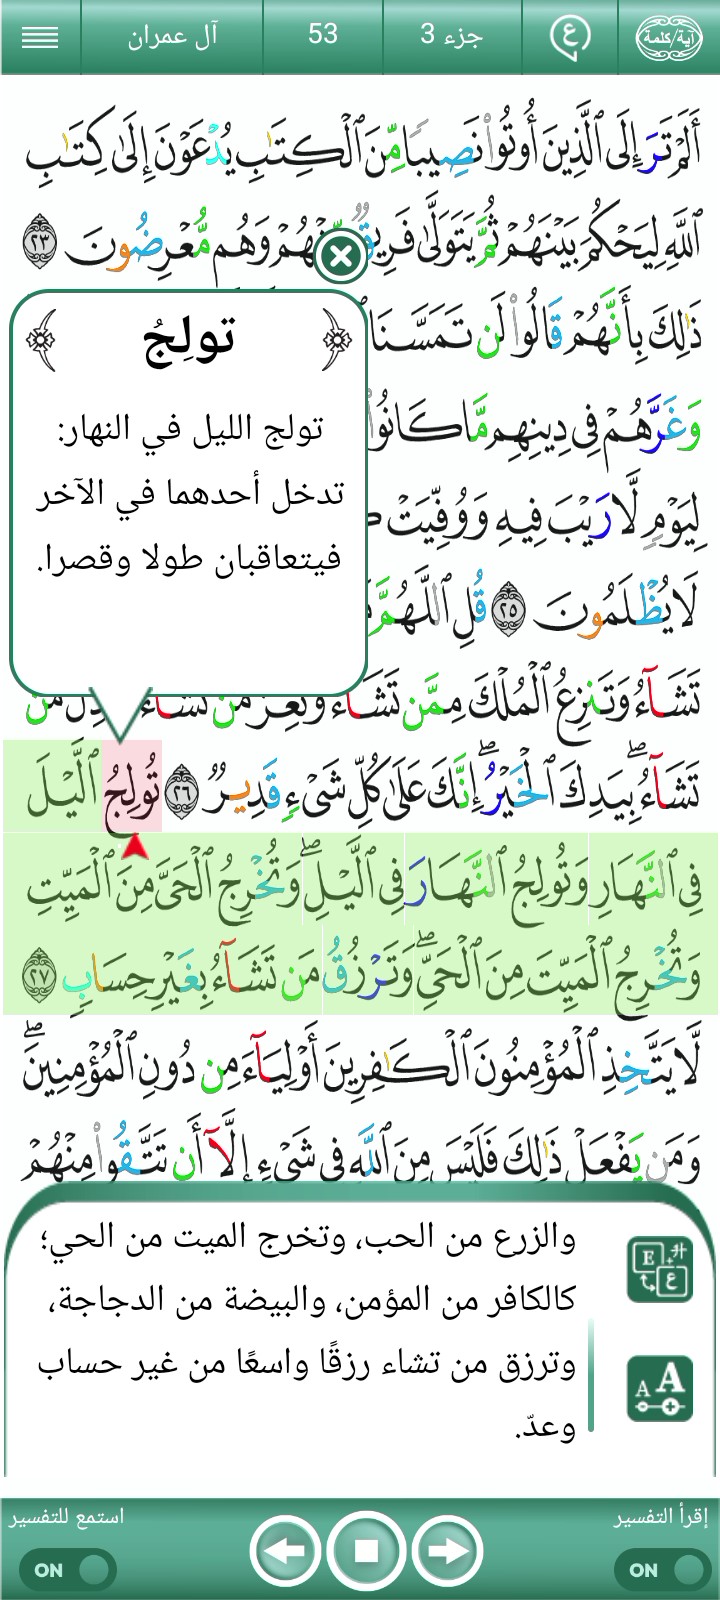 آية/كلمة ع جزء 3 53 آل عمران
أَلَمْ تَرَ إِلَى ٱلَّذِينَ أُوتُوا۟ نَصِيبًا مِّنَ ٱلْكِتَـٰبِ يُدْعَوْنَ إِلَىٰ كِتَـٰبِ
ٱللَّهِ لِيَحْكُمَ بَيْنَهُمْ ثُمَّ يَتَوَلَّىٰ فَرِيقٌ مِّنْهُمْ وَهُم مُّعْرِضُونَ ٢٣
ذَٰلِكَ بِأَنَّهُمْ قَالُوا۟ لَن تَمَسَّنَا
وَغَرَّهُمْ فِى دِينِهِم مَّا كَانُوا۟
لِيَوْمٍ لَّا رَيْبَ فِيهِ وَوُفِّيَتْ
لَا يُظْلَمُونَ ٢٥ قُلِ ٱللَّهُمَّ
تَشَآءُ وَتَنزِعُ ٱلْمُلْكَ مِمَّن تَشَآءُ وَتُعِزُّ مَن تَشَآءُ وَتُذِلُّ مَن
تَشَآءُ ۖ بِيَدِكَ ٱلْخَيْرُ ۖ إِنَّكَ عَلَىٰ كُلِّ شَىْءٍ قَدِيرٌ ٢٦ تُولِجُ ٱلَّيْلَ
فِى ٱلنَّهَارِ وَتُولِجُ ٱلنَّهَارَ فِى ٱلَّيْلِ ۖ وَتُخْرِجُ ٱلْحَىَّ مِنَ ٱلْمَيِّتِ
وَتُخْرِجُ ٱلْمَيِّتَ مِنَ ٱلْحَىِّ ۖ وَتَرْزُقُ مَن تَشَآءُ بِغَيْرِ حِسَابٍ ٢٧
لَّا يَتَّخِذِ ٱلْمُؤْمِنُونَ ٱلْكَـٰفِرِينَ أَوْلِيَآءَ مِن دُونِ ٱلْمُؤْمِنِينَ ۖ
وَمَن يَفْعَلْ ذَٰلِكَ فَلَيْسَ مِنَ ٱللَّهِ فِى شَىْءٍ إِلَّآ أَن تَتَّقُوا۟ مِنْهُمْ
﴿ تولِجُ ﴾
تولج الليل في النهار:
تدخل أحدهما في الآخر
فيتعاقبان طولا وقصرا.
والزرع من الحب، وتخرج الميت من الحي؛
كالكافر من المؤمن، والبيضة من الدجاجة،
وترزق من تشاء رزقًا واسعًا من غير حساب
وعدّ.
E ع
A A
إقرأ التفسير
ON
استمع للتفسير
ON